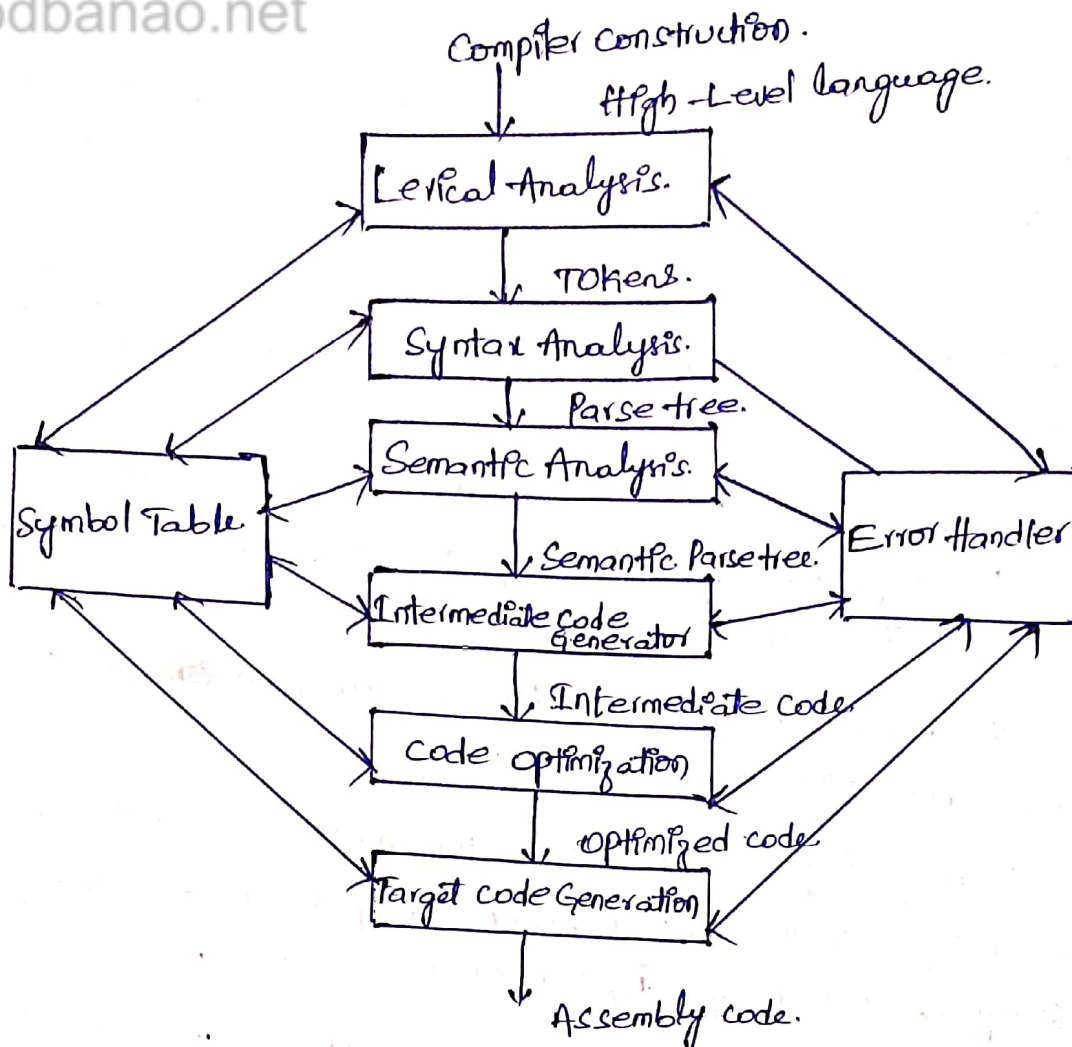 odbanao.net
Compiler construction.
High-Level language.
Lexical Analysis.
Tokens.
Syntax Analysis.
Parse tree.
Semantic Analysis.
Symbol Table
Error Handler
Semantic Parse tree.
Intermediate code
Generator
Intermediate code
Code optimization
optimized code
Target code Generation
Assembly code.